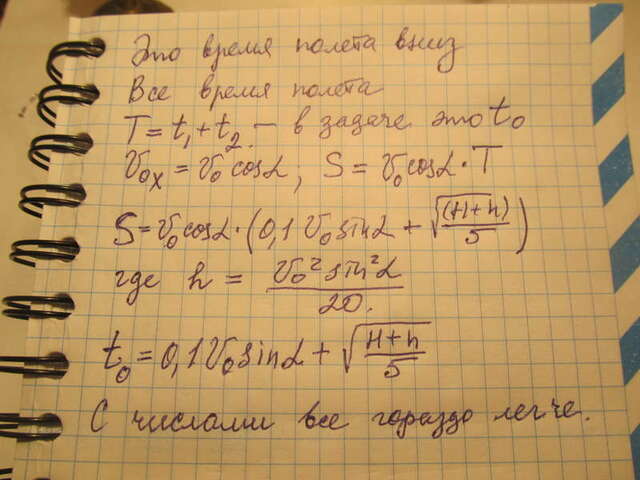 Это время полета вниз
Все время полета
T = t₁ + t₂ — в задаче это t₀
V₀ₓ = V₀ cosα; S = V₀ cosα · T
S = V₀ cosα · (0,1 V₀ sinα + √((H+h)/5))
где h = V₀² sin²α / 20.
t₀ = 0,1 V₀ sinα + √((H+h)/5)
С числами все гораздо легче.